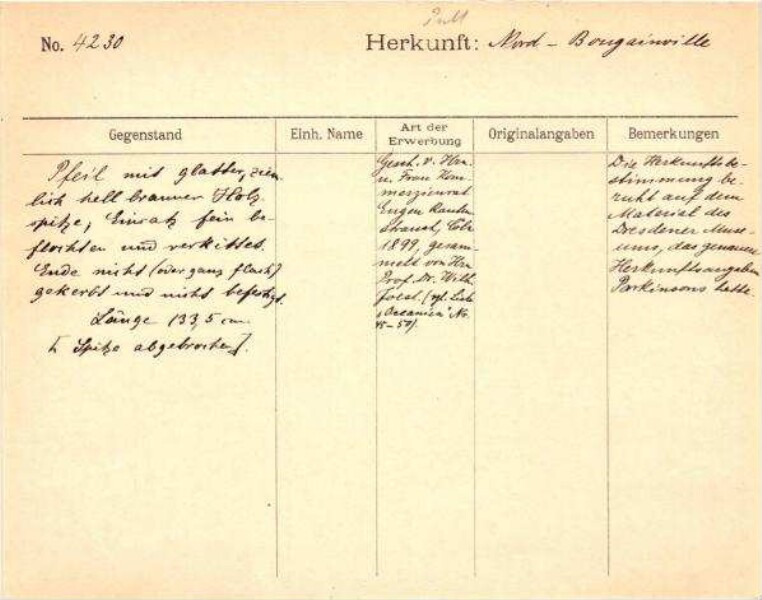 No. 4230
Herkunft: Nord – Bougainville
Gegenstand
Einh. Name
Art der Erwerbung
Originalangaben
Bemerkungen
Pfeil mit glatter, ziem
lich hell brauner Holz
spitze, Einsatz fein be
flochten und verkittet.
Ende nicht (oder ganz flach)
gekerbt und nicht befestigt.
Länge 133,5 cm.
[Spitze abgebrochen].
Gesch. v. Hrn.
u. Frau Kom
merzienrat
Eugen Rauten
strauch, Cöln
1899, gesam-
melt von Hrn
Prof. Dr. Wilh.
Joest. (vgl. Liste
"Oceanien" No.
45–50).
Die Herkunftsbe-
stimmung be-
ruht auf dem
Material des
Dresdener Muse-
ums, das genaue
Herkunftsangaben
Parkinsons hatte.